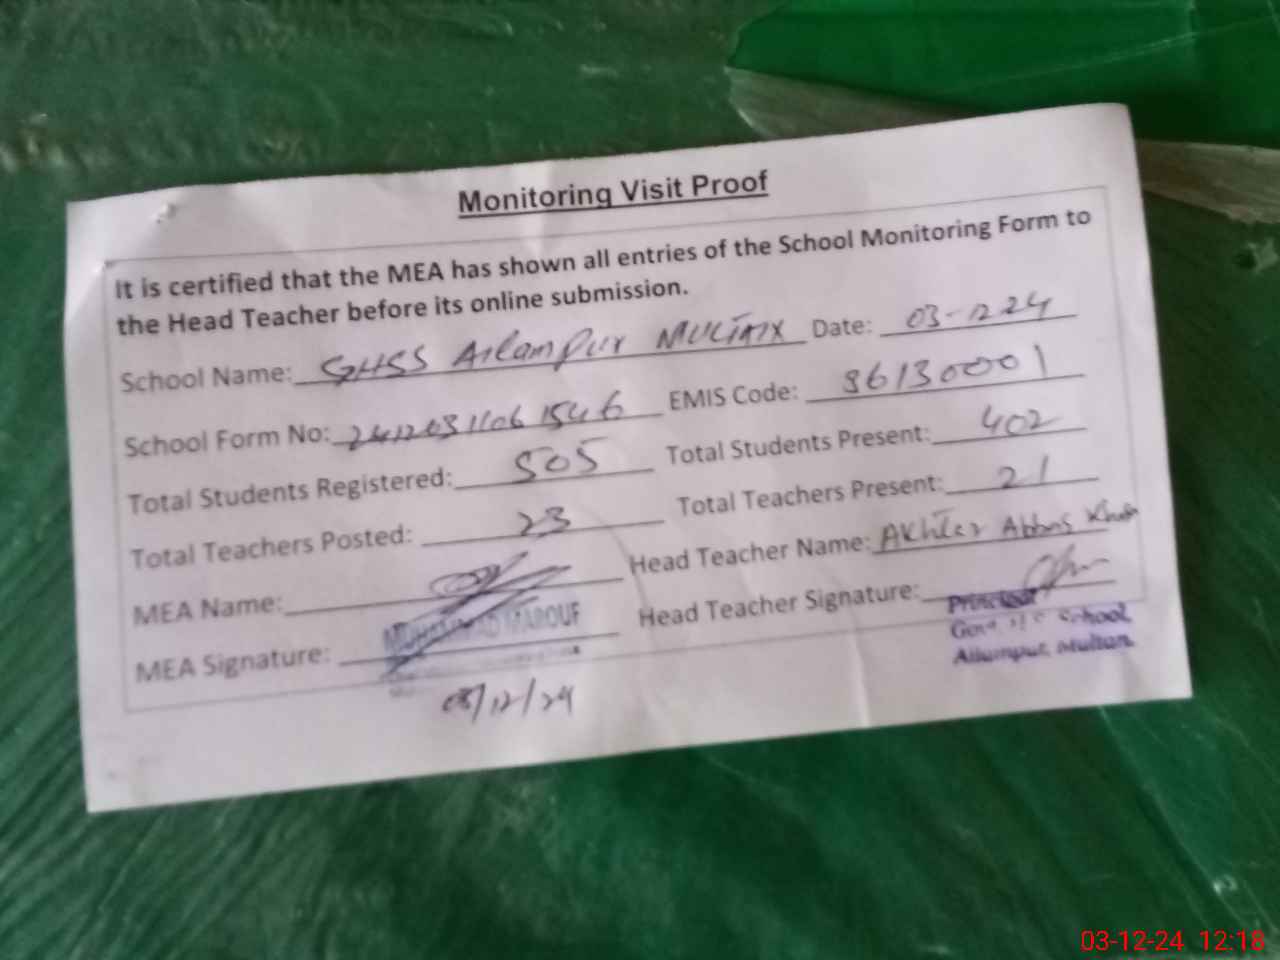 Monitoring Visit Proof
It is certified that the MEA has shown all entries of the School Monitoring Form to
the Head Teacher before its online submission.
School Name: GHSS Allampur Multan Date: 03-12-24
School Form No: EMIS Code: 36130001
Total Students Registered: 505 Total Students Present: 402
Total Teachers Posted: 23 Total Teachers Present: 21
MEA Name: Head Teacher Name: Akhter Abbas Khan
MEA Signature: MUHAMMAD MAROUF Head Teacher Signature:
Principal
Govt. School,
Allampur, Multan.
03/12/24
03-12-24 12:18